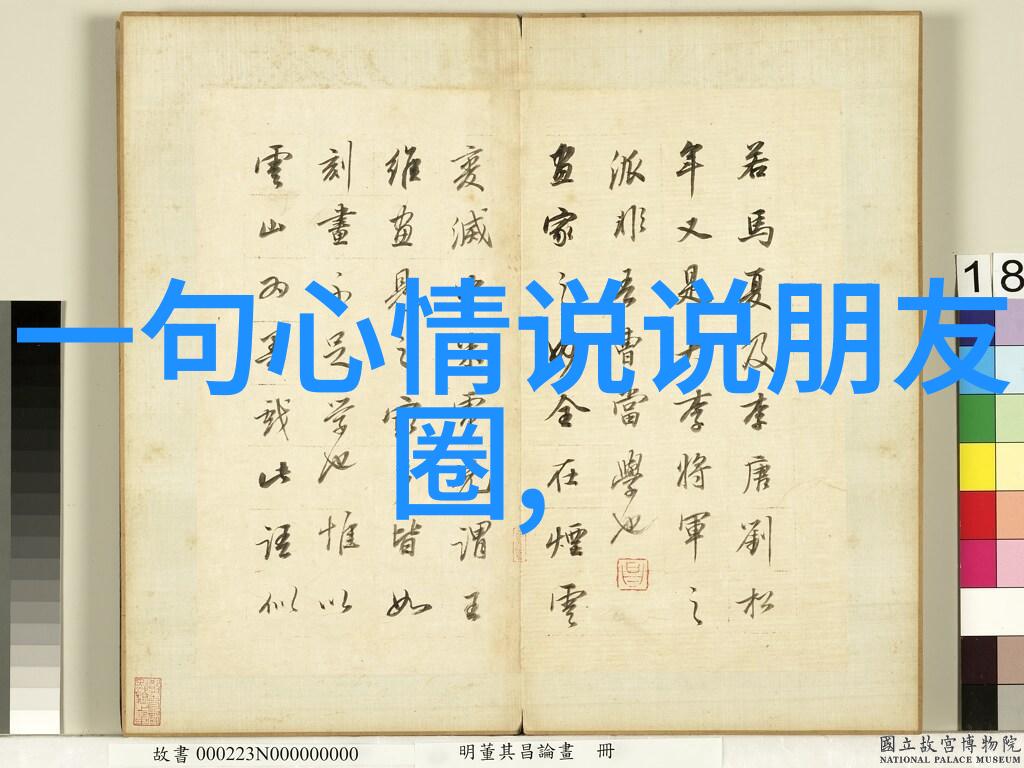 一句心情说说朋友圈,
若馬夏及李唐劉松
年又是大李將軍之
派非吾曹當學也
畫家之妙全在煙雲
變滅中米虎兒謂王
維畫見之皆如
刻畫不足學也惟以
雲山為墨戲此語似
18
故書 000223N000000000
明董其昌論畫 冊
國立故宮博物院
NATIONAL PALACE MUSEUM